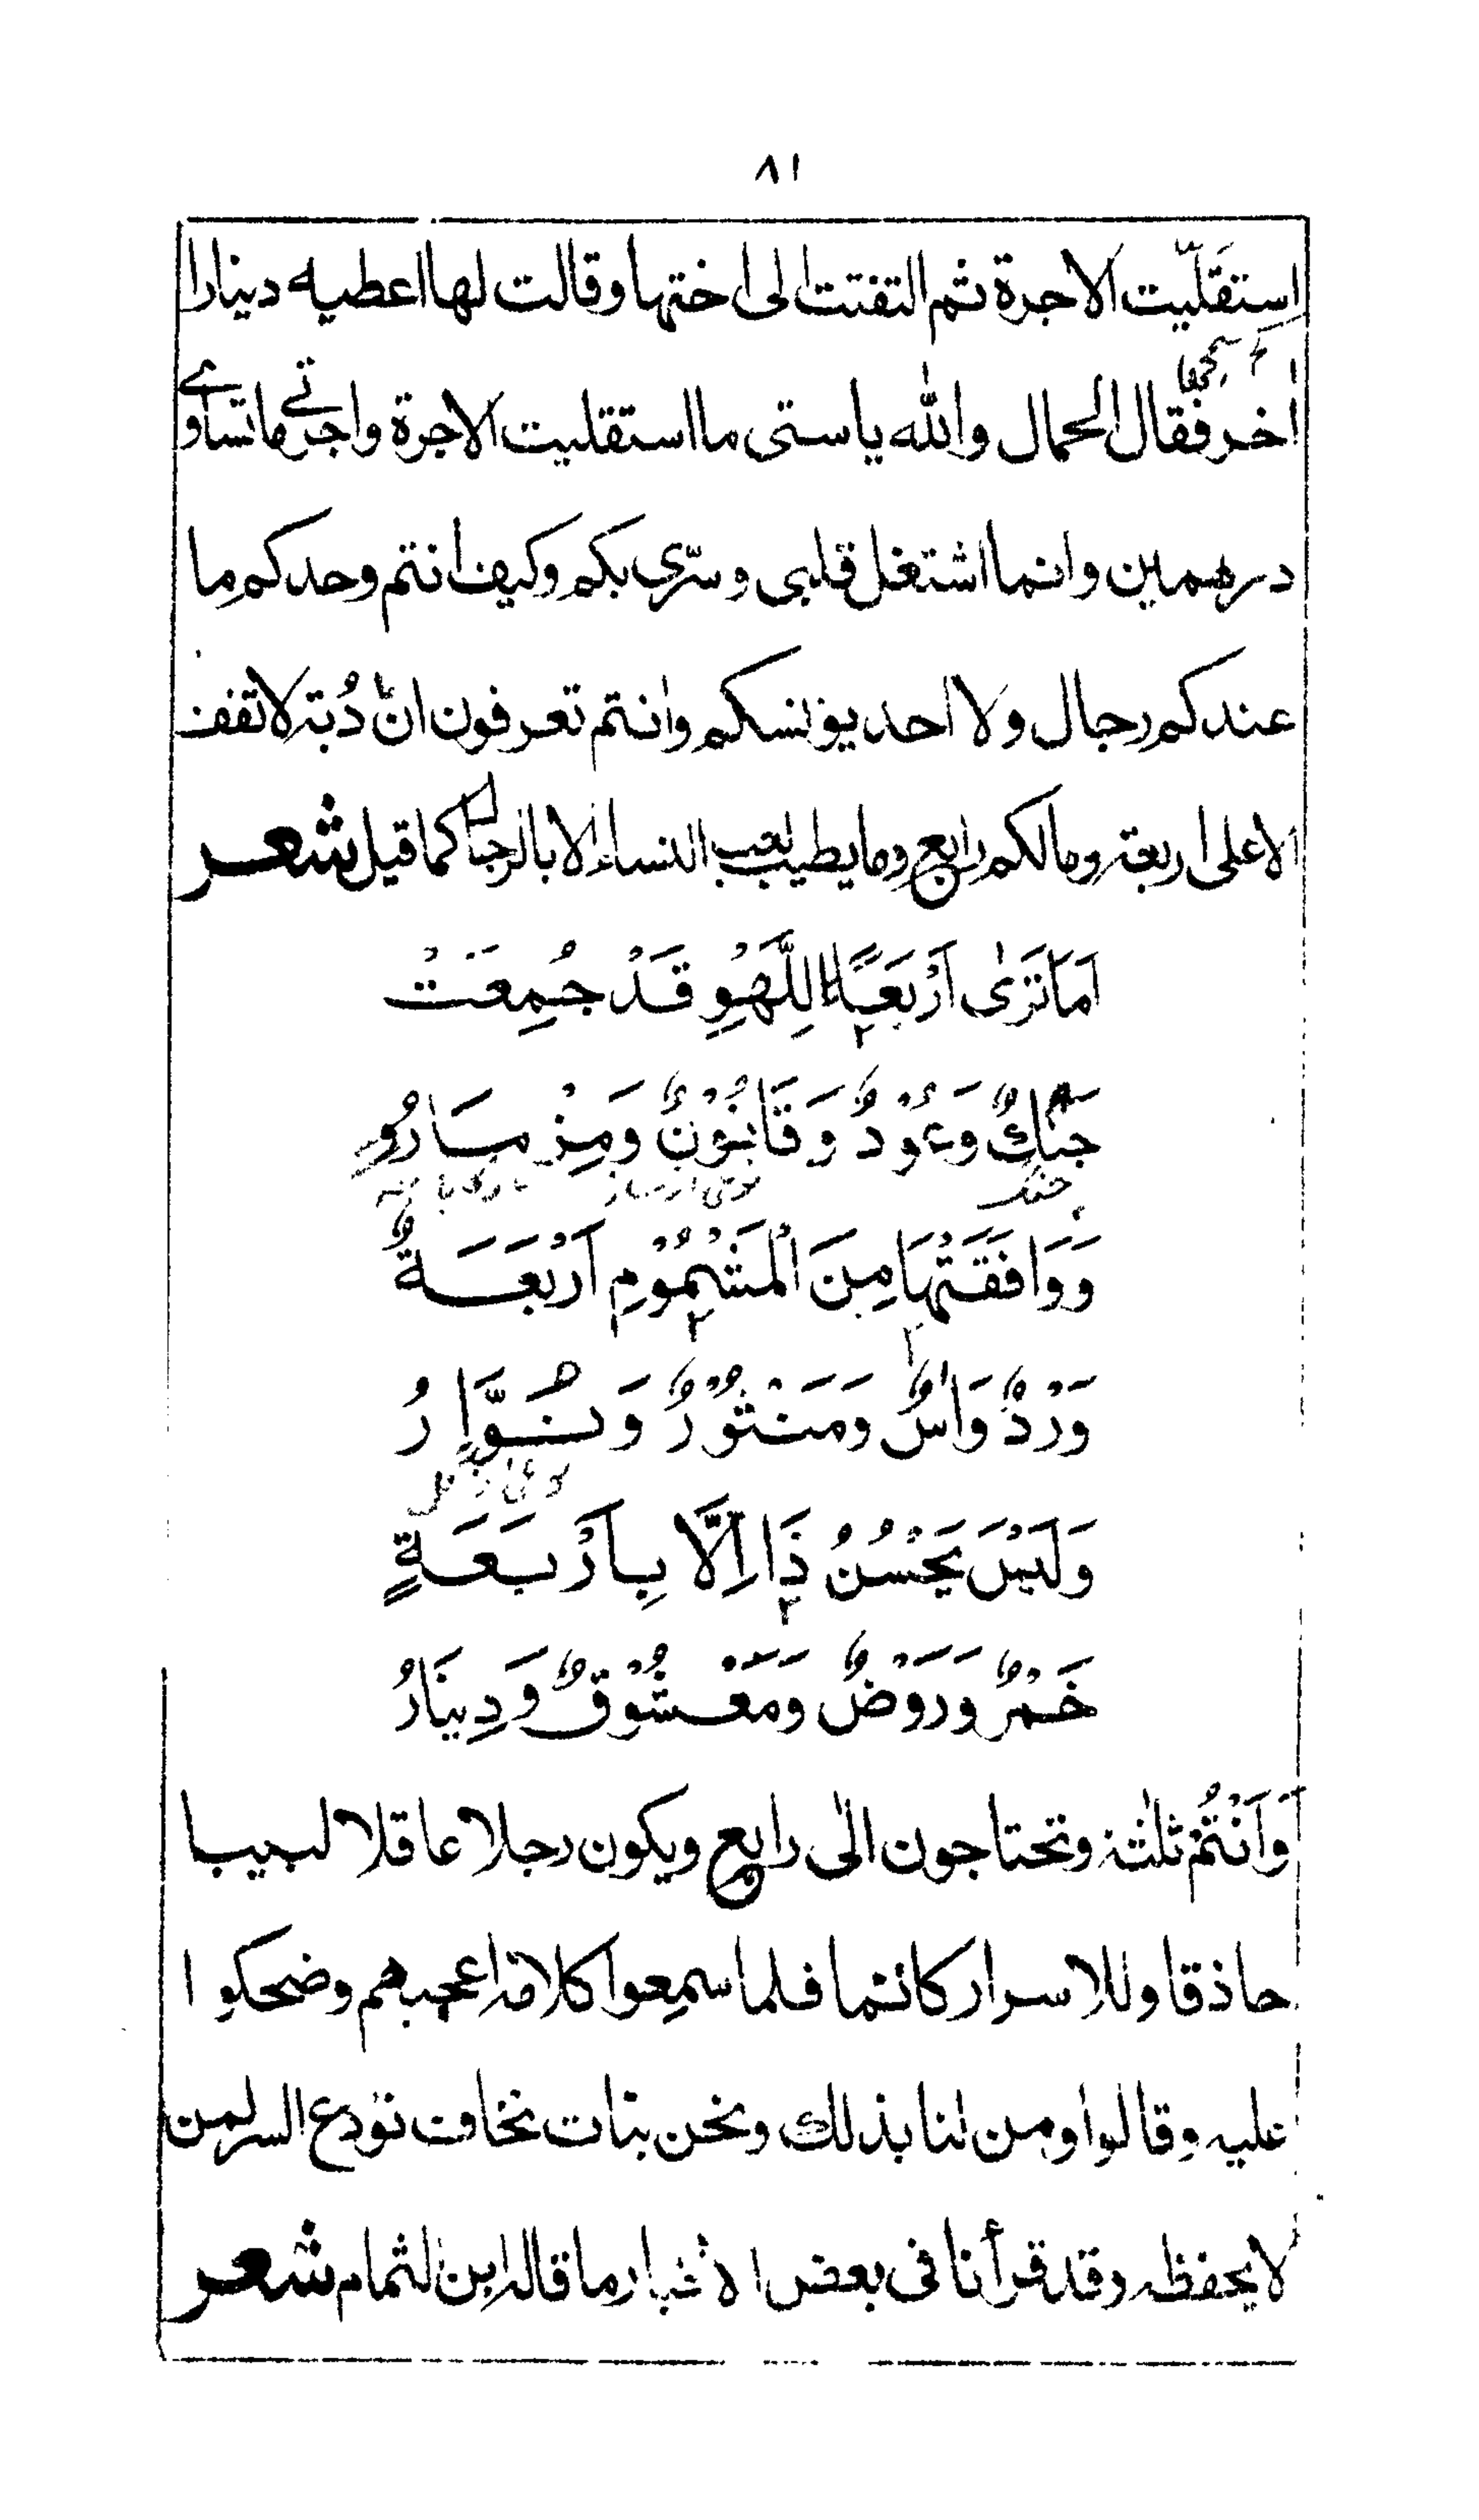 ٨١
اِستقَلّیت الاجرة ثم التفتت الى اختها وقالت لها اعطيه دينارا
اخر فقال الحمال والله ياستى ما استقليت الاجرة واجرتى ماتساوے
درهمين وانما اشتغل قلبى وسرّى بكم وكيف انتم وحدكم ما
عندكم رجال ولا احد يؤنسكم وانتم تعرفون ان دُبته لاتقف
الا على اربعة ومالكم رابع وما يطيب لعب النساء الا بالرجال كما قيل شعر
اَمَا تَرٰى اَرْبَعًا لِلَّهْوِ قَدْ جُمِعَتْ
جَنْكٌ وَعُوْدٌ وَقَانُوْنٌ وَمِزْمَارُو
جنگ
وَوَافَقَتْهَا مِنَ الْمَشْمُوْمِ اَرْبَعَةٌ
وَرْدٌ وَاٰسٌ وَمَنْثُوْرٌ وَنُوَّارُ
وَلَيْسَ يَحْسُنُ ذَا اِلَّا بِاَرْبَعَةٍ
خَمْرٌ وَرَوْضٌ وَمَعْشُوْقٌ وَدِينَارُ
وَاَنْتُمْ ثلٰثة وتحتاجون الى رابع ويكون رجلا عاقلا لبيبا
حاذقا وللاسرار كاتما فلما سمعوا كلامه اعجبهم وضحكوا
عليه وقالوا ومن لنا بذلك ونحن بنات نخاف نودع السر لمن
لا يحفظه وقد قرأنا فى بعض الاخبار ما قاله ابن الثمام شعر